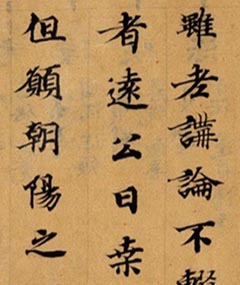 雖老講論不輟
者遠公曰桒
但願朝陽之